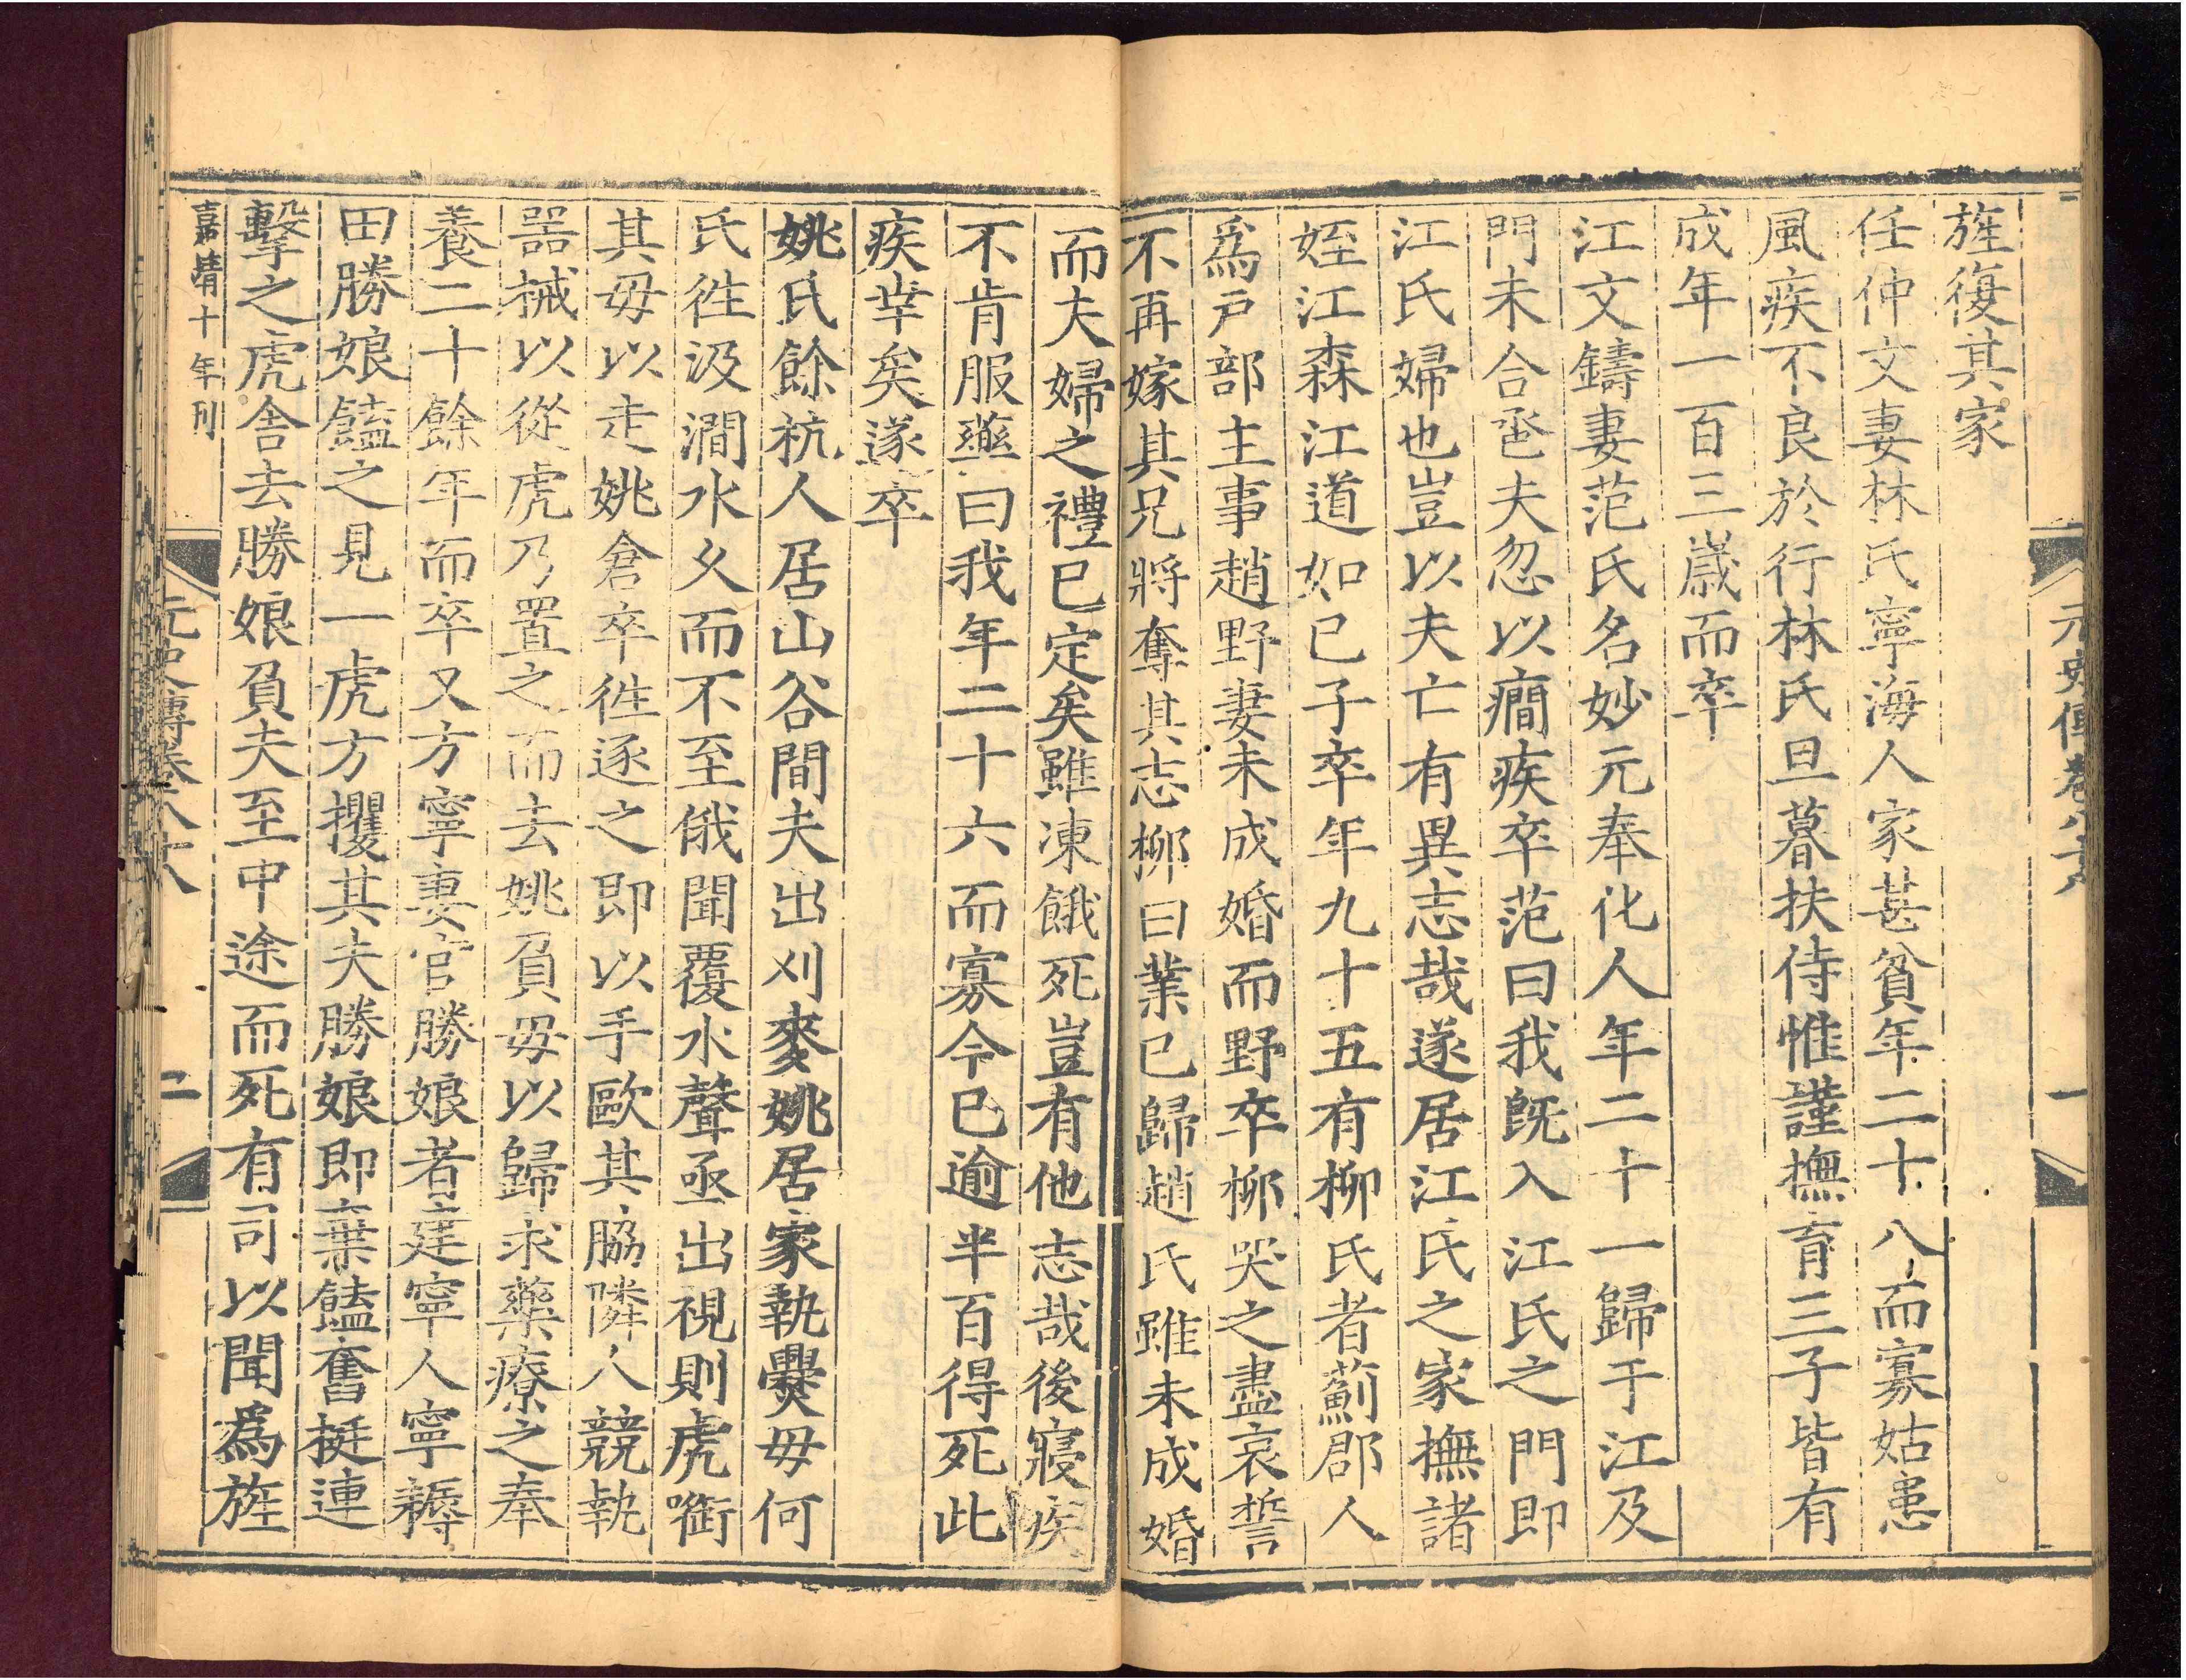 元史傳卷八十八
一
旌復其家
任仲文妻林氏寧海人家甚貧年二十八而寡姑患
風疾不良於行林氏旦暮扶侍惟謹撫育三子皆有
成年一百三歲而卒
江文鑄妻范氏名妙元奉化人年二十一歸于江及
門未合巹夫忽以癎疾卒范曰我旣入江氏之門即
江氏婦也豈以夫亡有異志哉遂居江氏之家撫諸
姪江森江道如已子卒年九十五有柳氏者薊郡人
爲戸部主事趙野妻未成婚而野卒柳哭之盡哀誓
不再嫁其兄將奪其志柳曰業已歸趙氏雖未成婚
而夫婦之禮已定矣雖凍餓死豈有他志哉後寢疾
不肯服藥曰我年二十六而寡今已逾半百得死此
疾幸矣遂卒
姚氏餘杭人居山谷間夫出刈麥姚居家執爨毋何
氏徃汲澗水乆而不至俄聞覆水聲亟出視則虎銜
其毋以走姚倉卒徃逐之即以手歐其脇隣人競執
噐械以從虎乃置之而去姚負毋以歸求藥療之奉
養二十餘年而卒又方寧妻官勝娘者建寧人寧耨
田勝娘饁之見一虎方攫其夫勝娘即棄饁奮梃連
擊之虎舎去勝娘負夫至中途而死有司以聞爲旌
嘉靖十年刊
元史傳卷八十八
二